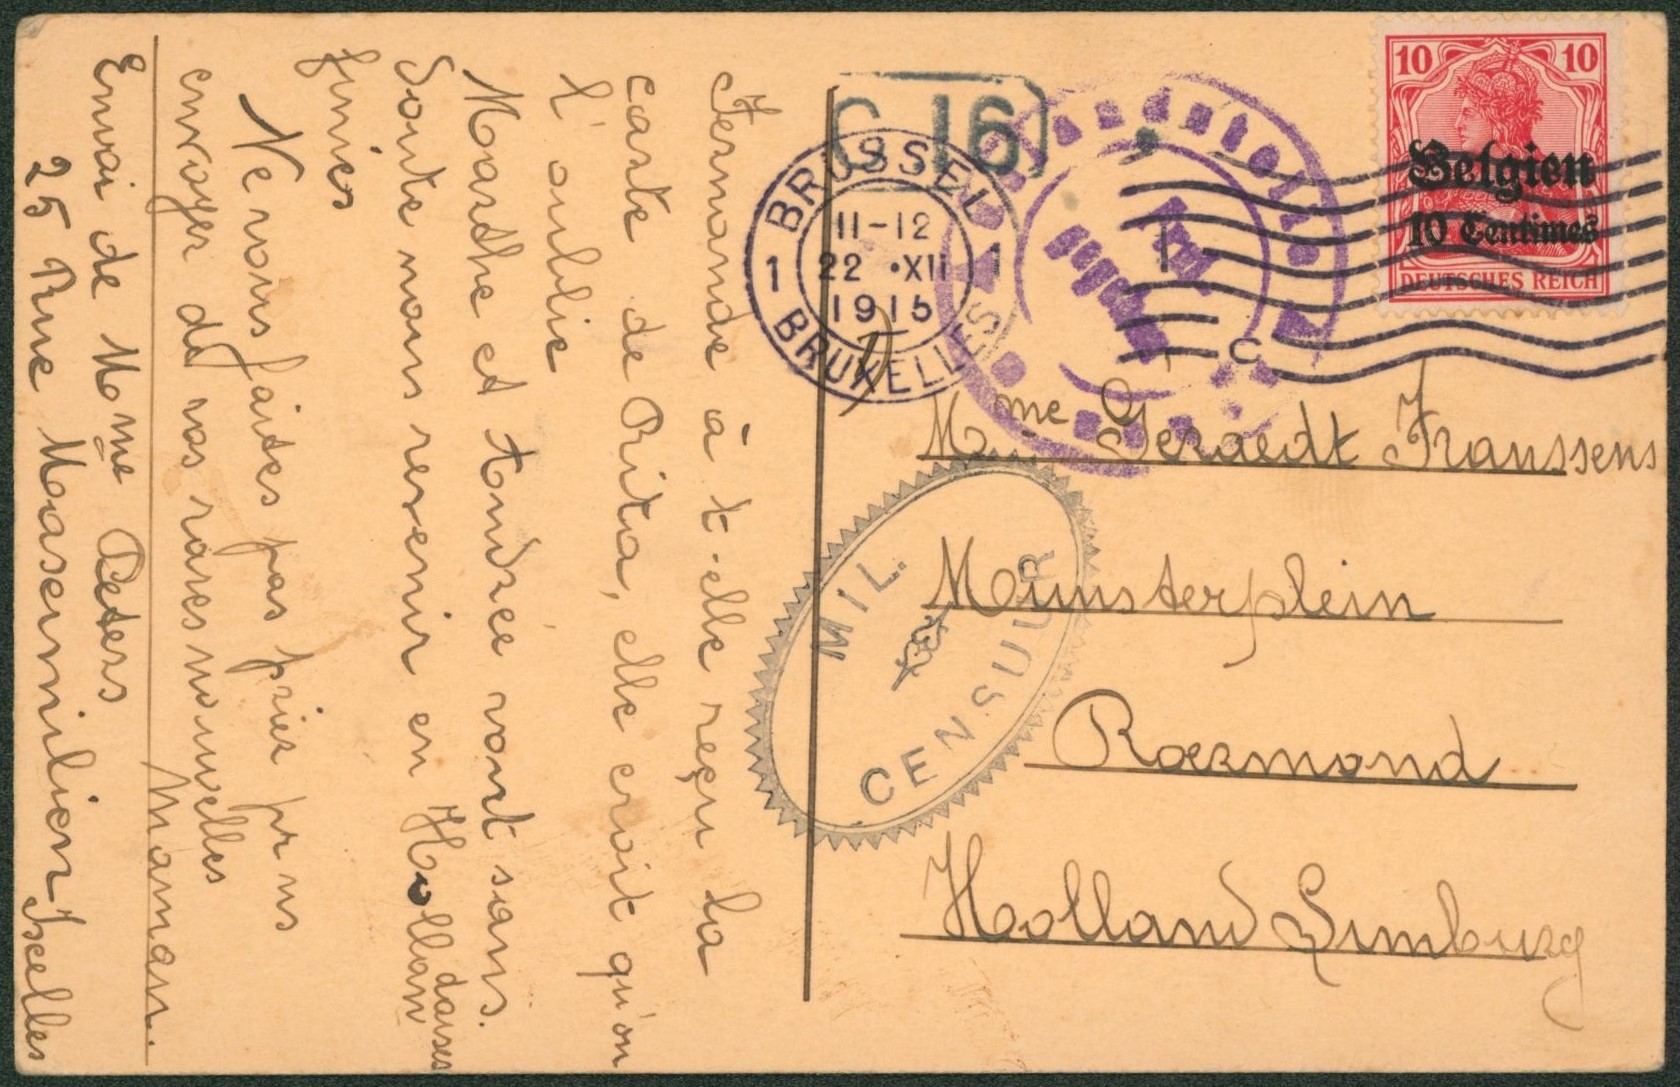 Fernande à t-elle reçu la
carte de Rita, elle croit qu'on
l'oublie
Marthe et Andrée vont sans
doute nous revenir en Hollan
daises
finies
Ne vous faites pas prier pr ns
envoyer de vos rares nouvelles
Maman.
Envoi de Mme Peters
25 Rue Maximilien Ixelles
C 16
BRUSSEL
11-12
1 22 •XII 1
1915
BRUXELLES
10 10
Belgien
10 Centimes
DEUTSCHES REICH
Mme Geraedt Franssens
Munsterplein
Roermond
Holland Limburg
MIL.
CENSUUR